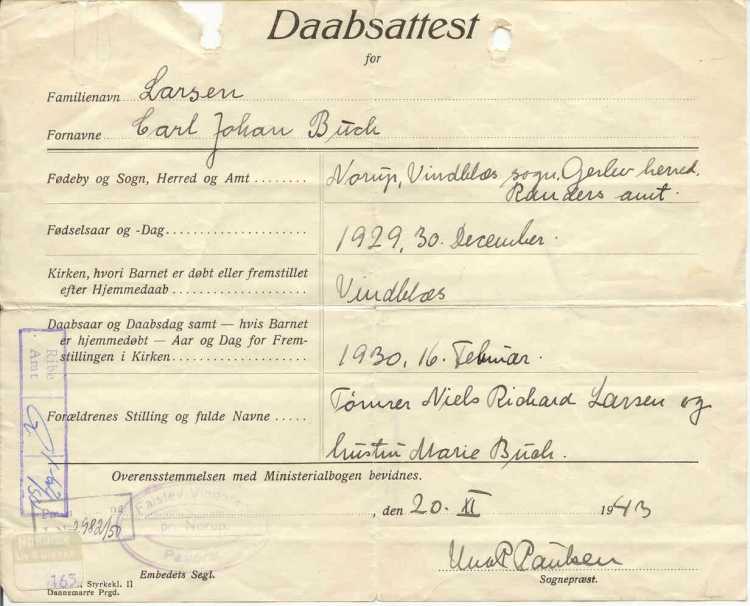 Daabsattest
for
Familienavn Larsen
Fornavne Carl Johan Buch
Fødeby og Sogn, Herred og Amt ........ Norup, Vindblæs sogn, Gerlev herred,
Randers amt.
Fødselsaar og -Dag .................... 1929, 30. December.
Kirken, hvori Barnet er døbt eller fremstillet
efter Hjemmedaab .................... Vindblæs
Daabsaar og Daabsdag samt — hvis Barnet
er hjemmedøbt — Aar og Dag for Frem-
stillingen i Kirken .................... 1930, 16. Februar.
Forældrenes Stilling og fulde Navne ..... Tømrer Niels Richard Larsen og
hustru Marie Buch.
Overensstemmelsen med Ministerialbogen bevidnes.
Ribe
Amt
Falslev-Vindblæs
pr. Norup.
, den 20. XI 1943
2982/50
165
Paulsen
Embedets Segl.
Sognepræst.
Styrkekl. II
Dannemarre Prgd.